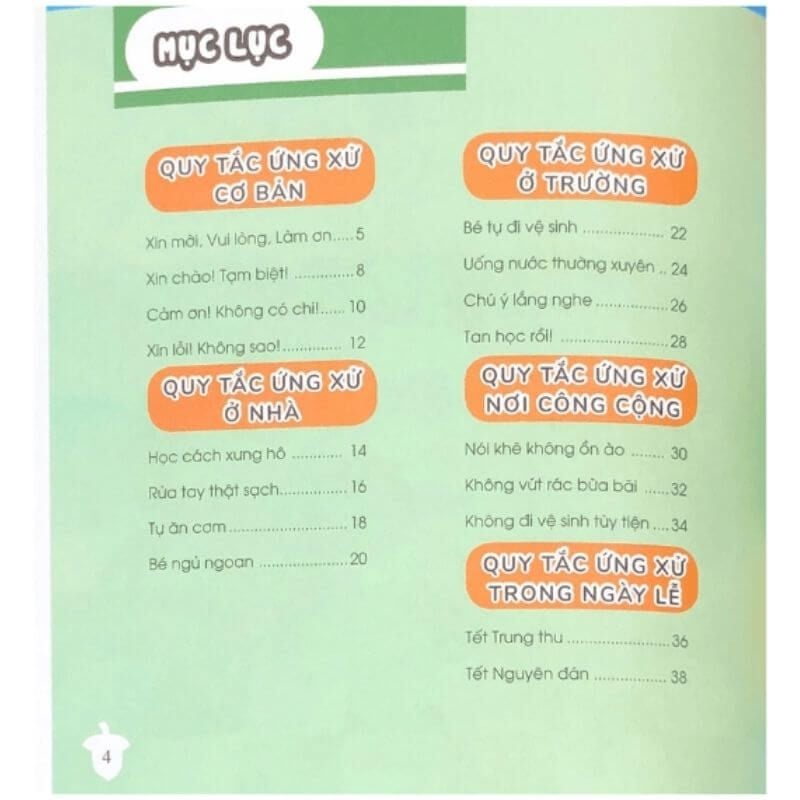 MỤC LỤC
QUY TẮC ỨNG XỬ
CƠ BẢN
Xin mời, Vui lòng, Làm ơn.....5
Xin chào! Tạm biệt! ..............8
Cảm ơn! Không có chi!...... 10
Xin lỗi! Không sao!.............. 12
QUY TẮC ỨNG XỬ
Ở NHÀ
Học cách xưng hô ............ 14
Rửa tay thật sạch.............. 16
Tự ăn cơm ........................ 18
Bé ngủ ngoan ....................20
QUY TẮC ỨNG XỬ
Ở TRƯỜNG
Bé tự đi vệ sinh .................. 22
Uống nước thường xuyên .. 24
Chú ý lắng nghe ................ 26
Tan học rồi! ........................ 28
QUY TẮC ỨNG XỬ
NƠI CÔNG CỘNG
Nói khẽ không ồn ào ........ 30
Không vứt rác bừa bãi ...... 32
Không đi vệ sinh tùy tiện ....34
QUY TẮC ỨNG XỬ
TRONG NGÀY LỄ
Tết Trung thu ......................36
Tết Nguyên đán ................ 38
4